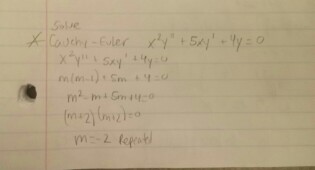 Solve
X Cauchy-Euler x²y'' + 5xy' + 4y = 0
x²y'' + 5xy' + 4y = 0
m(m-1) + 5m + 4 = 0
m² - m + 5m + 4 = 0
(m+2)(m+2) = 0
m = -2 Repeated